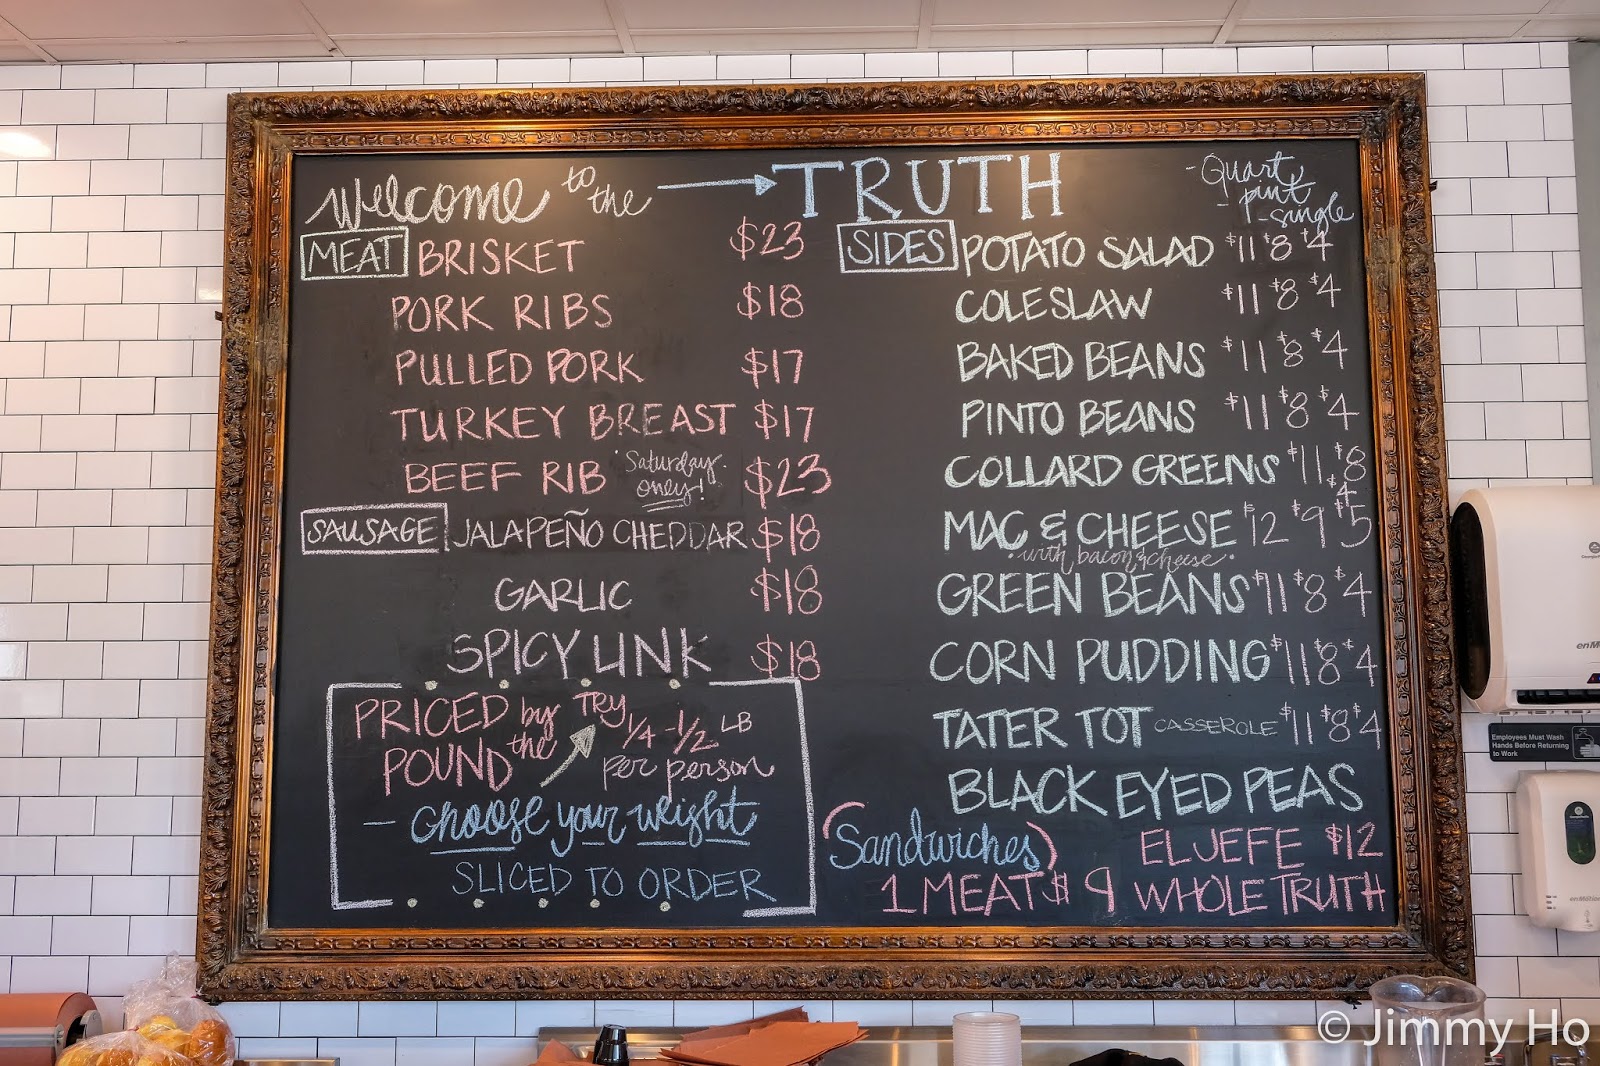 Welcome to the → TRUTH
- Quart
- pint
- single
MEAT BRISKET $23
PORK RIBS $18
PULLED PORK $17
TURKEY BREAST $17
BEEF RIB Saturday only! $23
SAUSAGE JALAPEÑO CHEDDAR $18
GARLIC $18
SPICY LINK $18
PRICED by the POUND
TRY 1/4 - 1/2 LB per person
- choose your weight
SLICED TO ORDER
SIDES POTATO SALAD $11 $8 $4
COLESLAW $11 $8 $4
BAKED BEANS $11 $8 $4
PINTO BEANS $11 $8 $4
COLLARD GREENS $11 $8 $4
MAC & CHEESE $12 $9 $5
GREEN BEANS with bacon & cheese $11 $8 $4
CORN PUDDING $11 $8 $4
TATER TOT CASSEROLE $11 $8 $4
BLACK EYED PEAS
(Sandwiches) EL JEFE $12
1 MEAT $9 WHOLE TRUTH
Employees Must Wash
Hands Before Returning
to Work
enMotion
© Jimmy Ho